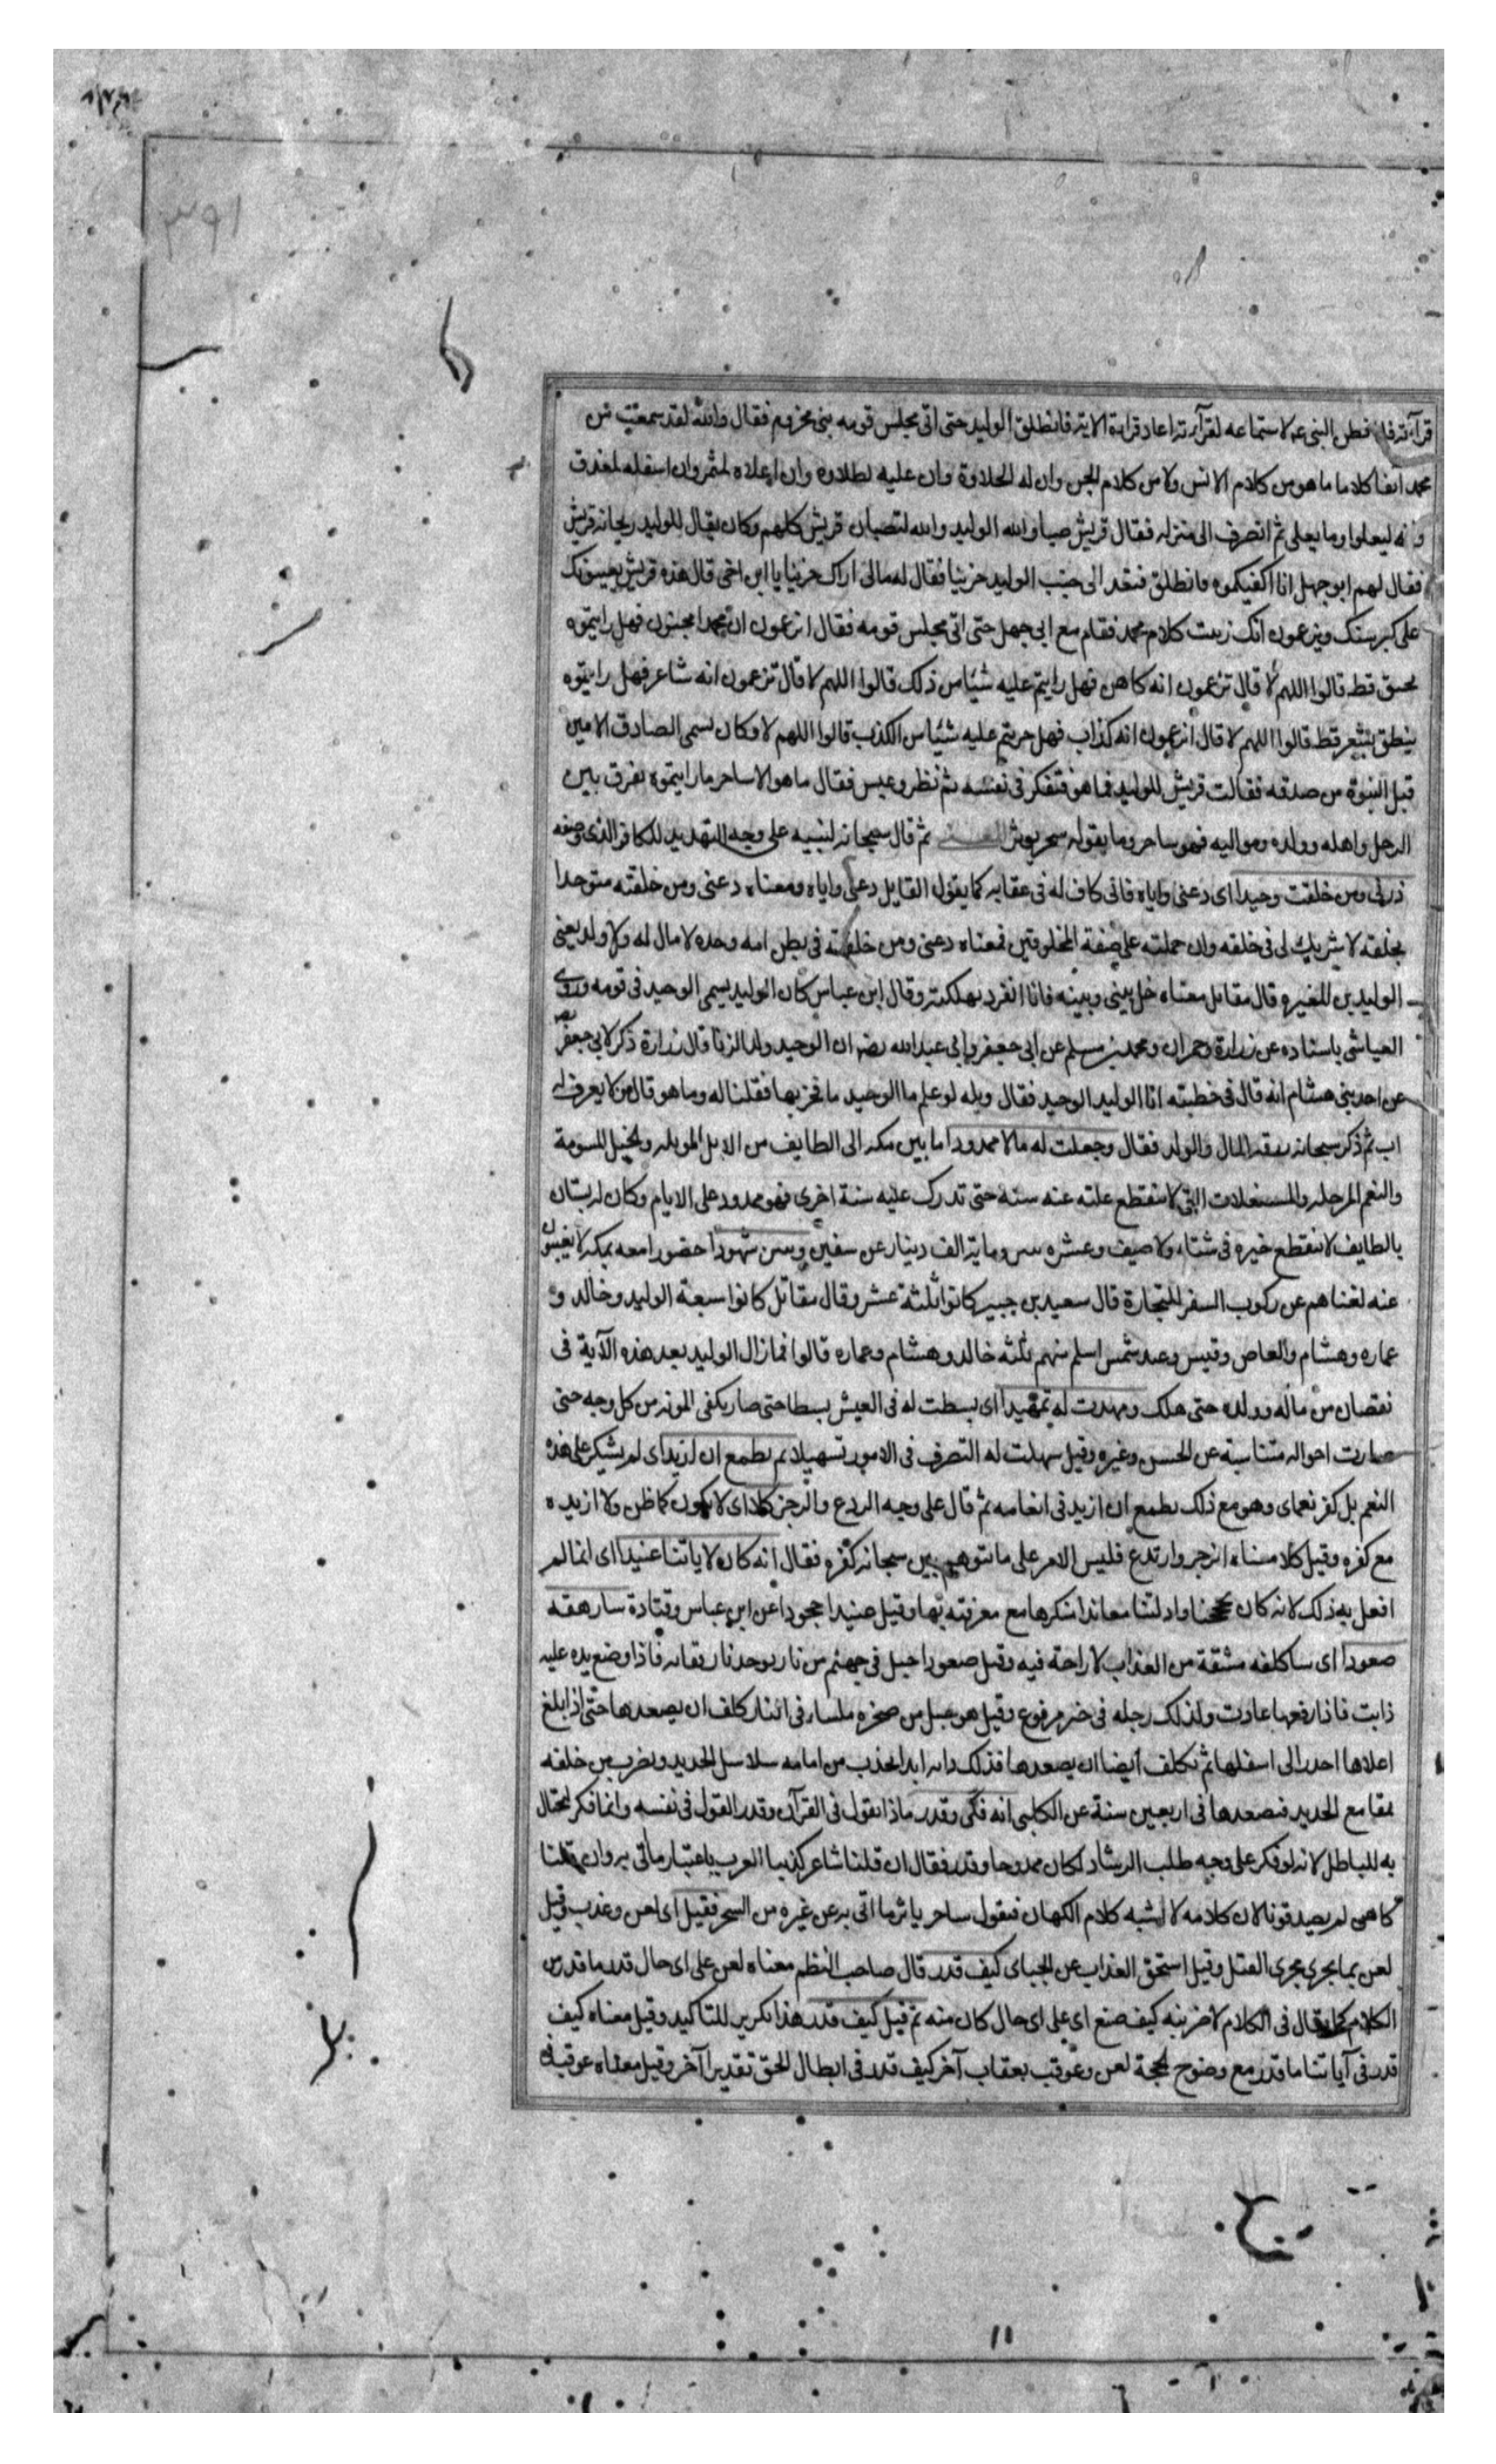 ٣٩١
قرآءته فلما فطن النبى عم لاستماعه لقرآءته اعاد قراءة الاية فانطلق الوليد حتى اتى مجلس قومه بنى مخزوم فقال والله لقد سمعت من
محمد آنفا كلاما ما هو من كلام الانس ولا من كلام الجن وان له لحلاوة وان عليه لطلاوة وان اعلاه لمثمر وان اسفله لمغدق
وانه ليعلوا وما يعلى ثم انصرف الى منزله فقال قريش صبا والله الوليد والله لتصبان قريش كلهم وكان يقال للوليد ريحانة قريش
فقال لهم ابو جهل انا اكفيكموه فانطلق فقعد الى جنب الوليد حزينا فقال له مالى اراك حزينا يا ابن اخى قال هذه قريش يعيبونك
على كبر سنك ويزعمون انك زينت كلام محمد فقام مع ابى جهل حتى اتى مجلس قومه فقال اتزعمون ان محمدا مجنون فهل رايتموه
يخنق قط قالوا اللهم لا قال تزعمون انه كاهن فهل رايتم عليه شيئا من ذلك قالوا اللهم لا قال تزعمون انه شاعر فهل رايتموه
ينطق بشعر قط قالوا اللهم لا قال اتزعمون انه كذاب فهل جربتم عليه شيئا من الكذب قالوا اللهم لا وكان يسمى الصادق الامين
قبل النبوة من صدقه فقالت قريش للوليد فما هو فتفكر فى نفسه ثم نظر وعبس فقال ما هو الا ساحر ما رايتموه يفرق بين
الرجل واهله وولده ومواليه فهو ساحر وما يقوله سحر يوثر ثم قال سبحانه لنبيه على وجه التهديد للكافر الذى وصفه
ذرنى ومن خلقت وحيدا اى دعنى واياه فانى كاف له فى عقابه كما يقول القايل دعنى واياه ومعناه دعنى ومن خلقته متوحدا
بخلقه لا شريك لى فى خلقه وان حملته على صفة المخلوقين فمعناه دعنى ومن خلقته فى بطن امه وحده لا مال له ولا ولد يعنى
الوليد بن المغيره قال مقاتل معناه خل بينى وبينه فانا انفرد بهلكته وقال ابن عباس كان الوليد يسمى الوحيد فى قومه وروى
العياشى باسناده عن زرارة وحمران ومحمد بن مسلم عن ابى جعفر وابى عبد الله ان الوحيد ولد الزنا قال زرارة ذكر لابى جعفر
عن احد بنى هشام انه قال فى خطبته انا الوليد الوحيد فقال ويله لو علم ما الوحيد ما فخر بها فقلنا له وما هو قال من لا يعرف له
اب ثم ذكر سبحانه رزقه المال والولد فقال وجعلت له مالا ممدودا ما بين مكه الى الطايف من الابل الموبله والخيل المسومة
والنعم المرحله والمستغلات التى لا تنقطع غلته عنه سنة حتى تدرك عليه سنة اخرى فهو ممدود على الايام وكان له بستان
بالطايف لا ينقطع خيره فى شتاء ولا صيف وعشره بنين وماية الف دينار عن سفين وبنين شهودا حضورا معه بمكه لا يغيبون
عنه لغناهم عن ركوب السفر للتجارة قال سعيد بن جبير كانوا ثلثة عشر وقال مقاتل كانوا سبعة الوليد وخالد و
عماره وهشام والعاص وقيس وعبد شمس اسلم منهم ثلثه خالد وهشام وعماره قالوا فما زال الوليد بعد هذه الآية فى
نقصان من ماله وولده حتى هلك ومهدت له تمهيدا اى بسطت له فى العيش بسطا حتى صار يكفى المونه من كل وجه حتى
صارت احواله متناسبة عن الحسن وغيره وقيل سهلت له التصرف فى الامور تسهيلا ثم يطمع ان ازيد اى لم يشكر على هذه
النعم بل كفر نعماى وهو مع ذلك يطمع ان ازيد فى انعامه ثم قال على وجه الردع والزجر كلا اى لا يكون كما ظن ولا ازيده
مع كفره وقيل كلا معناه انزجر وارتدع فليس الامر على ما تتوهم بين سبحانه كفره فقال انه كان لاياتنا عنيدا اى انما لم
افعل به ذلك لانه كان بحججنا وادلتنا معاندا منكرها مع معرفته بها وقيل عنيدا جحودا عن ابن عباس وقتادة سارهقه
صعودا اى ساكلفه مشقة من العذاب لا راحة فيه وقيل صعودا جبل فى جهنم من نار يوخذ بارتقائه فاذا وضع يده عليه
ذابت فاذا رفعها عادت وكذلك رجله فى خبر مرفوع وقيل هو جبل من صخره ملساء فى النار كلف ان يصعدها حتى اذا بلغ
اعلاها احدر الى اسفلها ثم يكلف ايضا ان يصعدها فذلك دابه ابدا يجذب من امامه سلاسل الحديد ويضرب من خلفه
بمقامع الحديد فيصعدها فى اربعين سنة عن الكلبى انه فكر وقدر ماذا يقول فى القرآن وقدر القول فى نفسه وانما فكر ليحتال
به للباطل لانه لو فكر على وجه طلب الرشاد لكان ممدوحا وقدر فقال ان قلنا شاعر كذبنا العرب باعتبار ما اتى به وان قلنا
كاهن لم يصدقونا لان كلامه لا يشبه كلام الكهان فيقول ساحر ياثر ما اتى به عن غيره من السحر فقيل اى لعن وعذب وقيل
لعن بما يجرى مجرى القتل وقيل استحق العذاب عن الجباى كيف قدر قال صاحب النظم معناه لعن على اى حال قدر ما قدر من
الكلام كما يقال فى الكلام لاضربنه كيف صنع اى على اى حال كان منه ثم قيل كيف قدر هذا تكرير للتاكيد وقيل معناه كيف
قدر فى آياتنا ما قدر مع وضوح الحجة لعن وعوقب بعقاب آخر كيف قدر فى ابطال الحق تقديرا آخر وقيل معناه عوقب